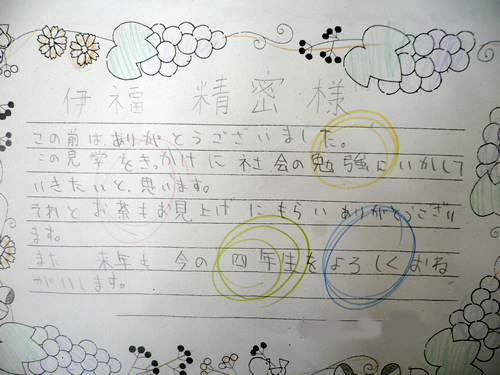 伊福 精密 様
この前は、ありがとうございました。
この見学をきっかけに社会の勉強にいかして
いきたいと、思います。
それとお茶もお見上げにもらいありがとうござい
ます。
また 来年も 今の 四年生をよろしくおね
がいします。